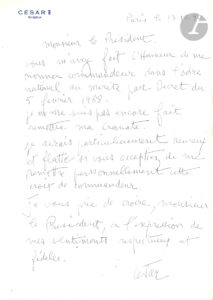 CESAR
Paris le 13
Monsieur le President
vous m'avez fait l'Honneur de me
nommer commandeur dans l'ordre
national du merite par Decret du
5 février 1988.
je ne me suis pas encore fait
remettre ma cravate.
je serais particulièrement heureux
et flatté si vous acceptiez de me
remettre personnellement cette
croix de commandeur.
je vous prie de croire, monsieur
le President, a l'expression de
mes sentiments respectueux et
fideles.
Cesar